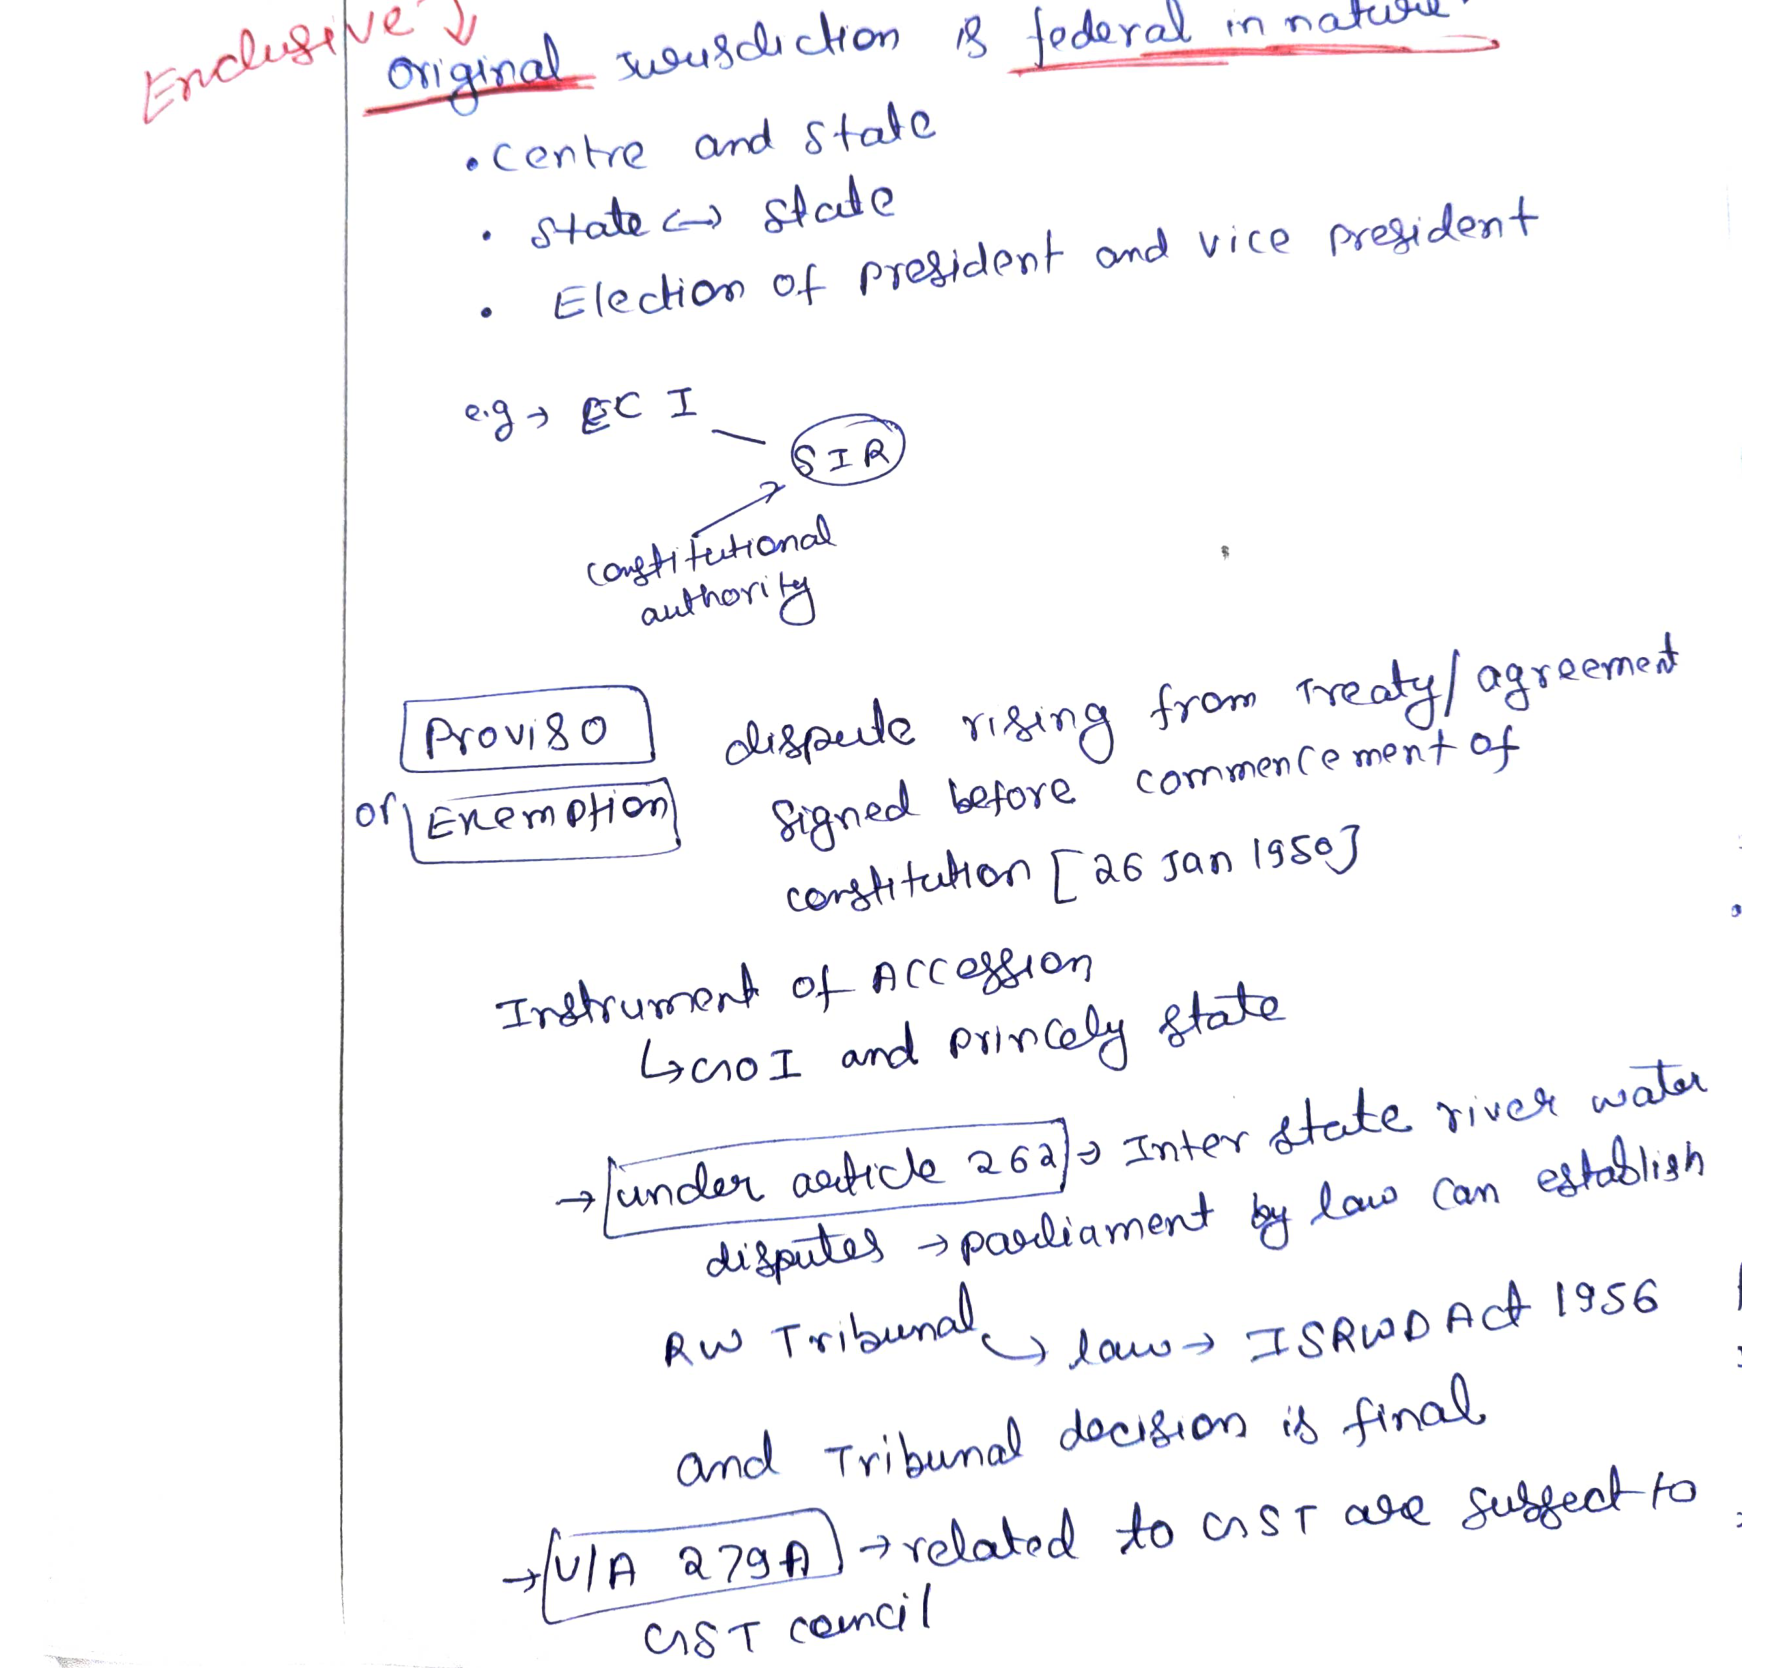 Exclusive ↓
original jurisdiction is federal in nature
• centre and state
• state ↔ state
• Election of president and vice president
e.g → ECI
SIR
constitutional
authority
Proviso dispute rising from Treaty/agreement
or Exemption signed before commencement of
constitution [26 Jan 1950]
Instrument of Accession
↳ GOI and princely state
→ under article 262 → Inter state river water
disputes → parliament by law can establish
RW Tribunal ↪ law → ISRWD Act 1956
and Tribunal decision is final
→ U/A 279A → related to GST are subject to
GST council